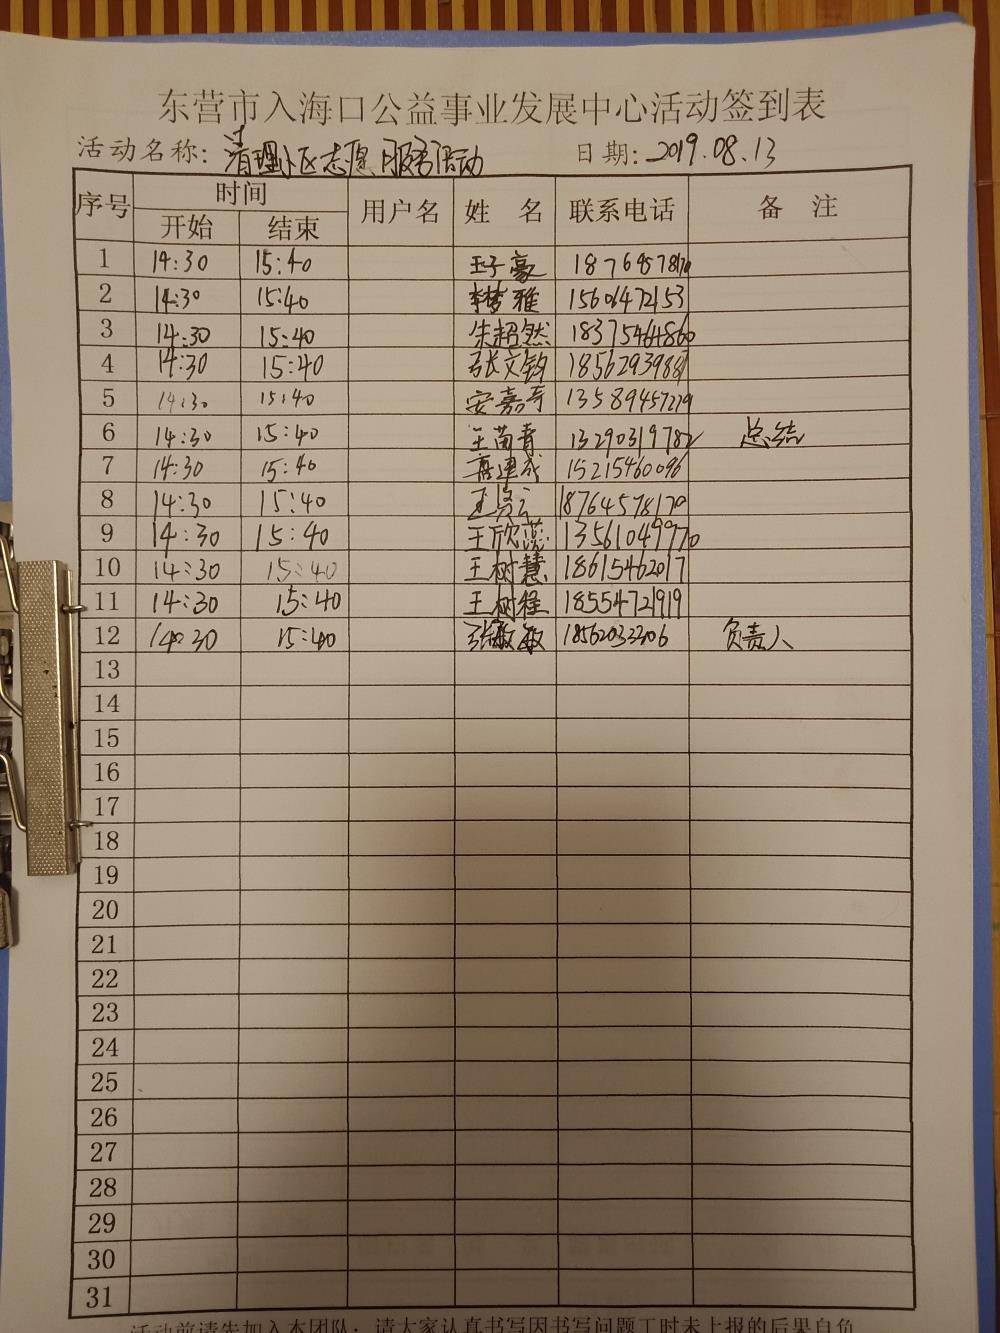 东营市入海口公益事业发展中心活动签到表
活动名称: 清理小区志愿服务活动 日期: 2019.08.13
序号 时间 用户名 姓名 联系电话 备注
开始 结束
1 14:30 15:40 王子豪
2 14:30 15:40 李梦雅 15606472153
3 14:30 15:40 朱超然 18375464860
4 14:30 15:40 张文钧 18562939881
5 14:30 15:40 安嘉 13589457279
6 14:30 15:40 王苗青 13290319782 总结
7 14:30 15:40 15215460096
8 14:30 15:40 18764578170
9 14:30 15:40 王欣蕊 13561049970
10 14:30 15:40 王树慧 18615462017
11 14:30 15:40 王树程 18554721919
12 14:30 15:40 张敏敏 18562033306 负责人
13
14
15
16
17
18
19
20
21
22
23
24
25
26
27
28
29
30
31
活动前请先加入本团队；请大家认真书写因书写问题工时未上报的后果自负